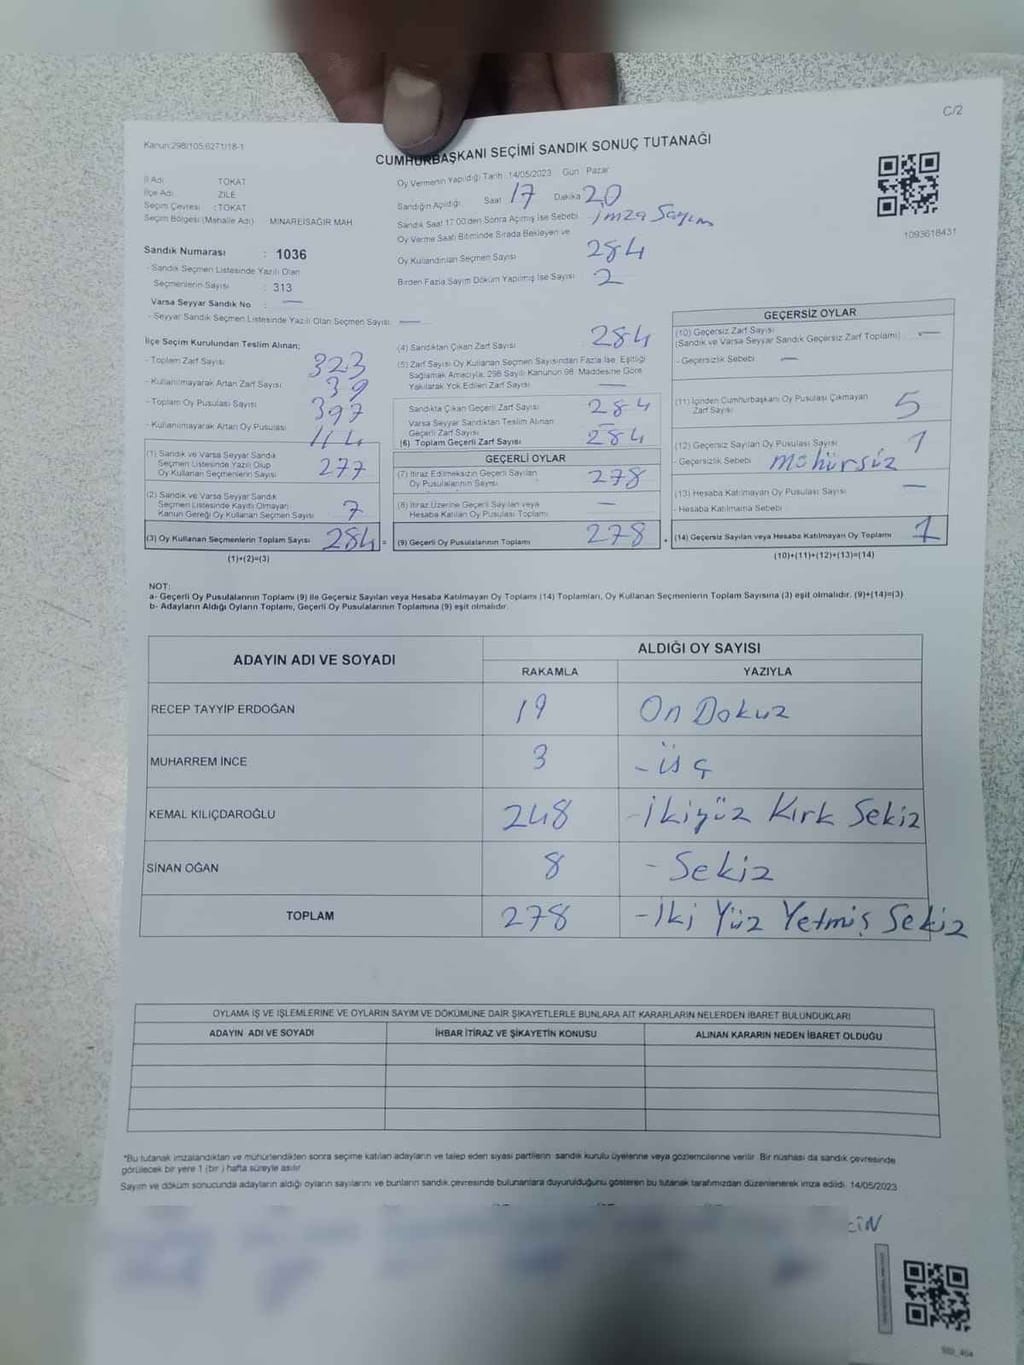 C/2
Kanun:298/105:6271/18-1
CUMHURBAŞKANI SEÇİMİ SANDIK SONUÇ TUTANAĞI
İl Adı : TOKAT
İlçe Adı : ZİLE
Seçim Çevresi : TOKAT
Seçim Bölgesi (Mahalle Adı) MİNAREİSAĞİR MAH.
Sandık Numarası : 1036
- Sandık Seçmen Listesinde Yazılı Olan
Seçmenlerin Sayısı : 313
Varsa Seyyar Sandık No : —
- Seyyar Sandık Seçmen Listesinde Yazılı Olan Seçmen Sayısı: —
Oy Vermenin Yapıldığı Tarih :14/05/2023 Gün : Pazar
Sandığın Açıldığı Saat 17 Dakika 20
Sandık Saat 17:00'den Sonra Açılmış İse Sebebi imza Sayım
Oy Verme Saati Bitiminde Sırada Bekleyen ve
Oy Kullandırılan Seçmen Sayısı 284
Birden Fazla Sayım Döküm Yapılmış İse Sayısı 2
1093618431
İlçe Seçim Kurulundan Teslim Alınan;
- Toplam Zarf Sayısı 323
- Kullanılmayarak Artan Zarf Sayısı 39
- Toplam Oy Pusulası Sayısı 397
- Kullanılmayarak Artan Oy Pusulası 114
(1) Sandık ve Varsa Seyyar Sandık
Seçmen Listesinde Yazılı Olup
Oy Kullanan Seçmenlerin Sayısı 277
(2) Sandık ve Varsa Seyyar Sandık
Seçmen Listesinde Kayıtlı Olmayan
Kanun Gereği Oy Kullanan Seçmen Sayısı 7
(3) Oy Kullanan Seçmenlerin Toplam Sayısı 284 =
(1)+(2)=(3)
(4) Sandıktan Çıkan Zarf Sayısı 284
(5) Zarf Sayısı Oy Kullanan Seçmen Sayısından Fazla İse, Eşitliği
Sağlamak Amacıyla, 298 Sayılı Kanunun 98. Maddesine Göre
Yakılarak Yok Edilen Zarf Sayısı —
Sandıkta Çıkan Geçerli Zarf Sayısı 284
Varsa Seyyar Sandıktan Teslim Alınan
Geçerli Zarf Sayısı —
(6) Toplam Geçerli Zarf Sayısı 284
GEÇERLİ OYLAR
(7) İtiraz Edilmeksizin Geçerli Sayılan
Oy Pusulalarının Sayısı 278
(8) İtiraz Üzerine Geçerli Sayılan veya
Hesaba Katılan Oy Pusulası Toplamı —
(9) Geçerli Oy Pusulalarının Toplamı 278
GEÇERSİZ OYLAR
(10) Geçersiz Zarf Sayısı
(Sandık ve Varsa Seyyar Sandık Geçersiz Zarf Toplamı) —
- Geçersizlik Sebebi —
(11) İçinden Cumhurbaşkanı Oy Pusulası Çıkmayan
Zarf Sayısı 5
(12) Geçersiz Sayılan Oy Pusulası Sayısı 1
- Geçersizlik Sebebi mühürsüz
(13) Hesaba Katılmayan Oy Pusulası Sayısı —
- Hesaba Katılmama Sebebi
(14) Geçersiz Sayılan veya Hesaba Katılmayan Oy Toplamı 1
(10)+(11)+(12)+(13)=(14)
NOT:
a- Geçerli Oy Pusulalarının Toplamı (9) ile Geçersiz Sayılan veya Hesaba Katılmayan Oy Toplamı (14) Toplamları, Oy Kullanan Seçmenlerin Toplam Sayısına (3) eşit olmalıdır. (9)+(14)=(3)
b- Adayların Aldığı Oyların Toplamı, Geçerli Oy Pusulalarının Toplamına (9) eşit olmalıdır.
ADAYIN ADI VE SOYADI ALDIĞI OY SAYISI
RAKAMLA YAZIYLA
RECEP TAYYİP ERDOĞAN 19 On Dokuz
MUHARREM İNCE 3 - üç
KEMAL KILIÇDAROĞLU 248 - İkiyüz Kırk Sekiz
SİNAN OĞAN 8 - Sekiz
TOPLAM 278 - İki Yüz Yetmiş Sekiz
OYLAMA İŞ VE İŞLEMLERİNE VE OYLARIN SAYIM VE DÖKÜMÜNE DAİR ŞİKAYETLERLE BUNLARA AİT KARARLARIN NELERDEN İBARET BULUNDUKLARI
ADAYIN ADI VE SOYADI İHBAR İTİRAZ VE ŞİKAYETİN KONUSU ALINAN KARARIN NEDEN İBARET OLDUĞU
*Bu tutanak imzalandıktan ve mühürlendikten sonra seçime katılan adayların ve talep eden siyasi partilerin sandık kurulu üyelerine veya gözlemcilerine verilir. Bir nüshası da sandık çevresinde
görülecek bir yere 1 (bir ) hafta süreyle asılır.
Sayım ve döküm sonucunda adayların aldığı oyların sayılarını ve bunların sandık çevresinde bulunanlara duyurulduğunu gösteren bu tutanak tarafımızdan düzenlenerek imza edildi. 14/05/2023